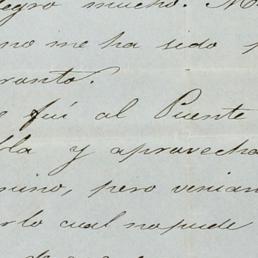 legro mucho. M
no me ha sido p
ranto.
e fuí al Puente
lla y aprovecha
mino, pero venian
r lo cual no pude